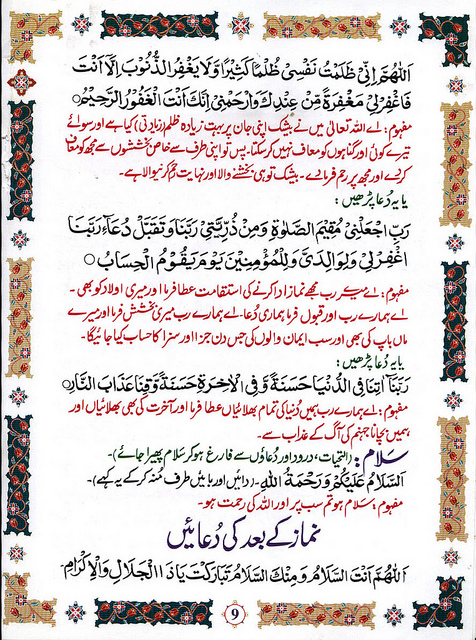 اَللّٰهُمَّ اِنِّيْ ظَلَمْتُ نَفْسِيْ ظُلْمًا كَثِيْرًا وَّلَا يَغْفِرُ الذُّنُوْبَ اِلَّا اَنْتَ
فَاغْفِرْلِيْ مَغْفِرَةً مِّنْ عِنْدِكَ وَارْحَمْنِيْ اِنَّكَ اَنْتَ الْغَفُوْرُ الرَّحِيْمُ○
مفہوم: اے اللہ تعالیٰ میں نے بیشک اپنی جان پر بہت زیادہ ظلم (زیادتی) کیا ہے اور سوائے
تیرے کوئی اور گناہوں کو معاف نہیں کر سکتا۔ پس تو اپنی طرف سے خاص بخششوں سے مجھ کو معاف
کر دے اور مجھ پر رحم فرما دے۔ بیشک تو ہی بخشنے والا اور نہایت رحم کرنیوالا ہے۔
یا یہ دُعا پڑھیں:
رَبِّ اجْعَلْنِيْ مُقِيْمَ الصَّلٰوةِ وَمِنْ ذُرِّيَّتِيْ رَبَّنَا وَتَقَبَّلْ دُعَآءِ رَبَّنَا
اغْفِرْلِيْ وَلِوَالِدَيَّ وَلِلْمُؤْمِنِيْنَ يَوْمَ يَقُوْمُ الْحِسَابُ○
مفہوم: اے میرے رب مجھے نماز ادا کرنے کی استقامت عطا فرما اور میری اولاد کو بھی۔
اے ہمارے رب اور قبول فرما ہماری دُعا۔ اے ہمارے رب میری بخشش فرما اور میرے
ماں باپ کی بھی اور سب ایمان والوں کی جس دن جزا اور سزا کا حساب کیا جائیگا۔
یا یہ دُعا پڑھیں:
رَبَّنَا اٰتِنَا فِي الدُّنْيَا حَسَنَةً وَّفِي الْاٰخِرَةِ حَسَنَةً وَّقِنَا عَذَابَ النَّارِ○
مفہوم: اے ہمارے رب ہمیں دُنیا کی تمام بھلائیاں عطا فرما اور آخرت کی بھی بھلائیاں اور
ہمیں بچانا جہنم کی آگ کے عذاب سے۔
سلام: (التحیات، درود اور دُعاؤں سے فارغ ہو کر سلام پھیرا جائے)۔
اَلسَّلَامُ عَلَيْكُمْ وَرَحْمَةُ اللهِ۔ (دائیں اور بائیں طرف مُنہ کر کے یہ کہے)۔
مفہوم: سلام ہو تم سب پر اور اللہ کی رحمت ہو۔
نماز کے بعد کی دُعائیں
اَللّٰهُمَّ اَنْتَ السَّلَامُ وَمِنْكَ السَّلَامُ تَبَارَكْتَ يَاذَا الْجَلَالِ وَالْاِكْرَامِ
9